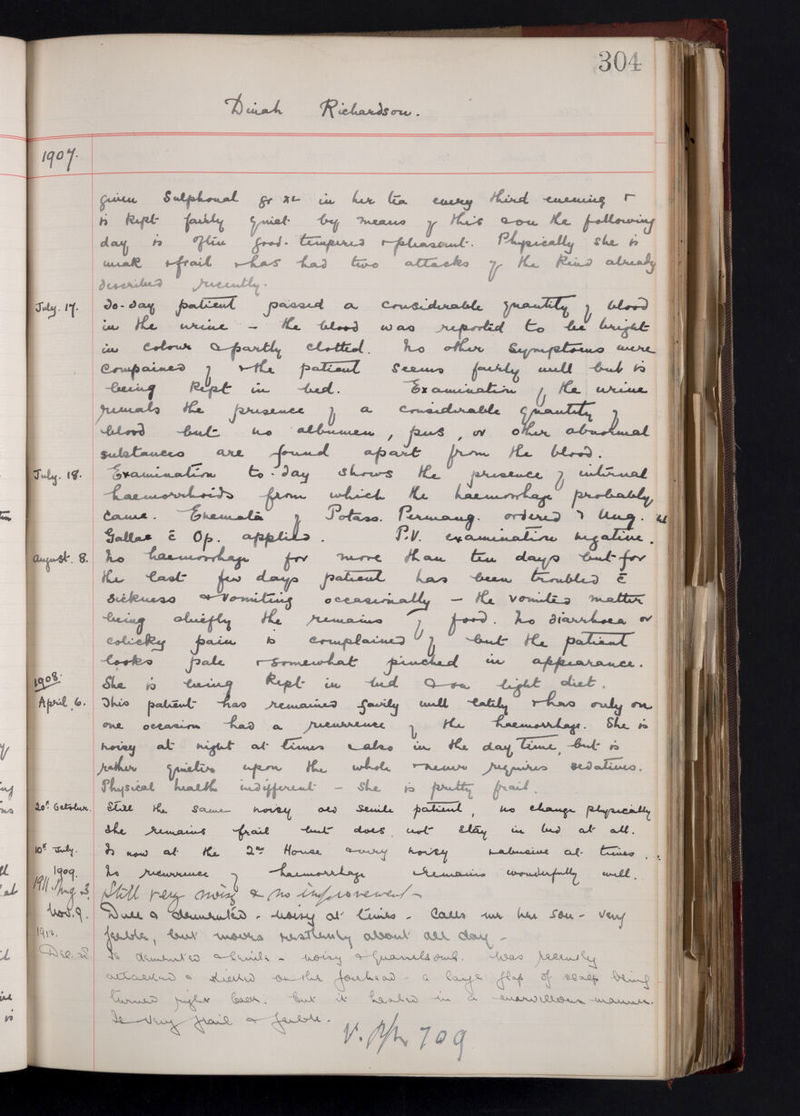 304
Dinah Richardson.
1907.
given Sulphonal gr xl in her tea every third evening &
is kept fairly quiet by means of this & on the following
day is often good-tempered & pleasant. Physically she is
weak & frail & has had two attacks of the kind already
described recently.
July. 17. To-day patient passed a considerable quantity of blood
in the urine – the blood was reported to be bright
in colour & partly clotted. No other symptoms were
compained of & the patient seems fairly well but is
being kept in bed. Examination of the urine
reveals the presence of a considerable quantity of
blood but no albumen, pus, or other abnormal
substances are found apart from the blood.
July. 18. Examination to-day shows the presence of internal
haemorrhoids from which the haemorrhage probably
came. Enemata of Potass. Permang. ordered & Ung.
Gallae c̄ Op. applied. P.V. examination negative.
August. 8. No haemorrhage for more than ten days but for
the last few days patient has been troubled c̄
sickness & vomiting occasionally – the vomited matter
being chiefly the remains of food. No diarrhoea or
colicky pain is complained of but the patient
looks pale & somewhat pinched in appearance.
She is being kept in bed & on light diet.
1908.
April. 6. This patient has remained fairly well lately & has only on
one occasion had a recurrence of the haemorrhage. She is
noisy at night at times & also in the day time, but is
rather quieter upon the whole & never requires sedatives.
Physical health indifferent – she is pretty frail.
20th October. Still the same noisy old senile patient, no change physically
she remains frail but does not stay in bed at all.
10th July. Is now at the 2nd House & very noisy & abusive at times.
1909. No recurrence of haemorrhage & remains wonderfully well.
1911 Aug. 3. Still very noisy & no improvement –
Nov. 9. Dull & demented – noisy at times – Calls me her son – very
feeble, but moves restlessly about all day –
1912.
Dec. 28 Is demented & senile – noisy & quarrelsome. Was recently
attacked & kicked on the forehead – a large flap of scalp being
turned right back. but it healed in a marvellous manner.
Is very frail & feeble.
709